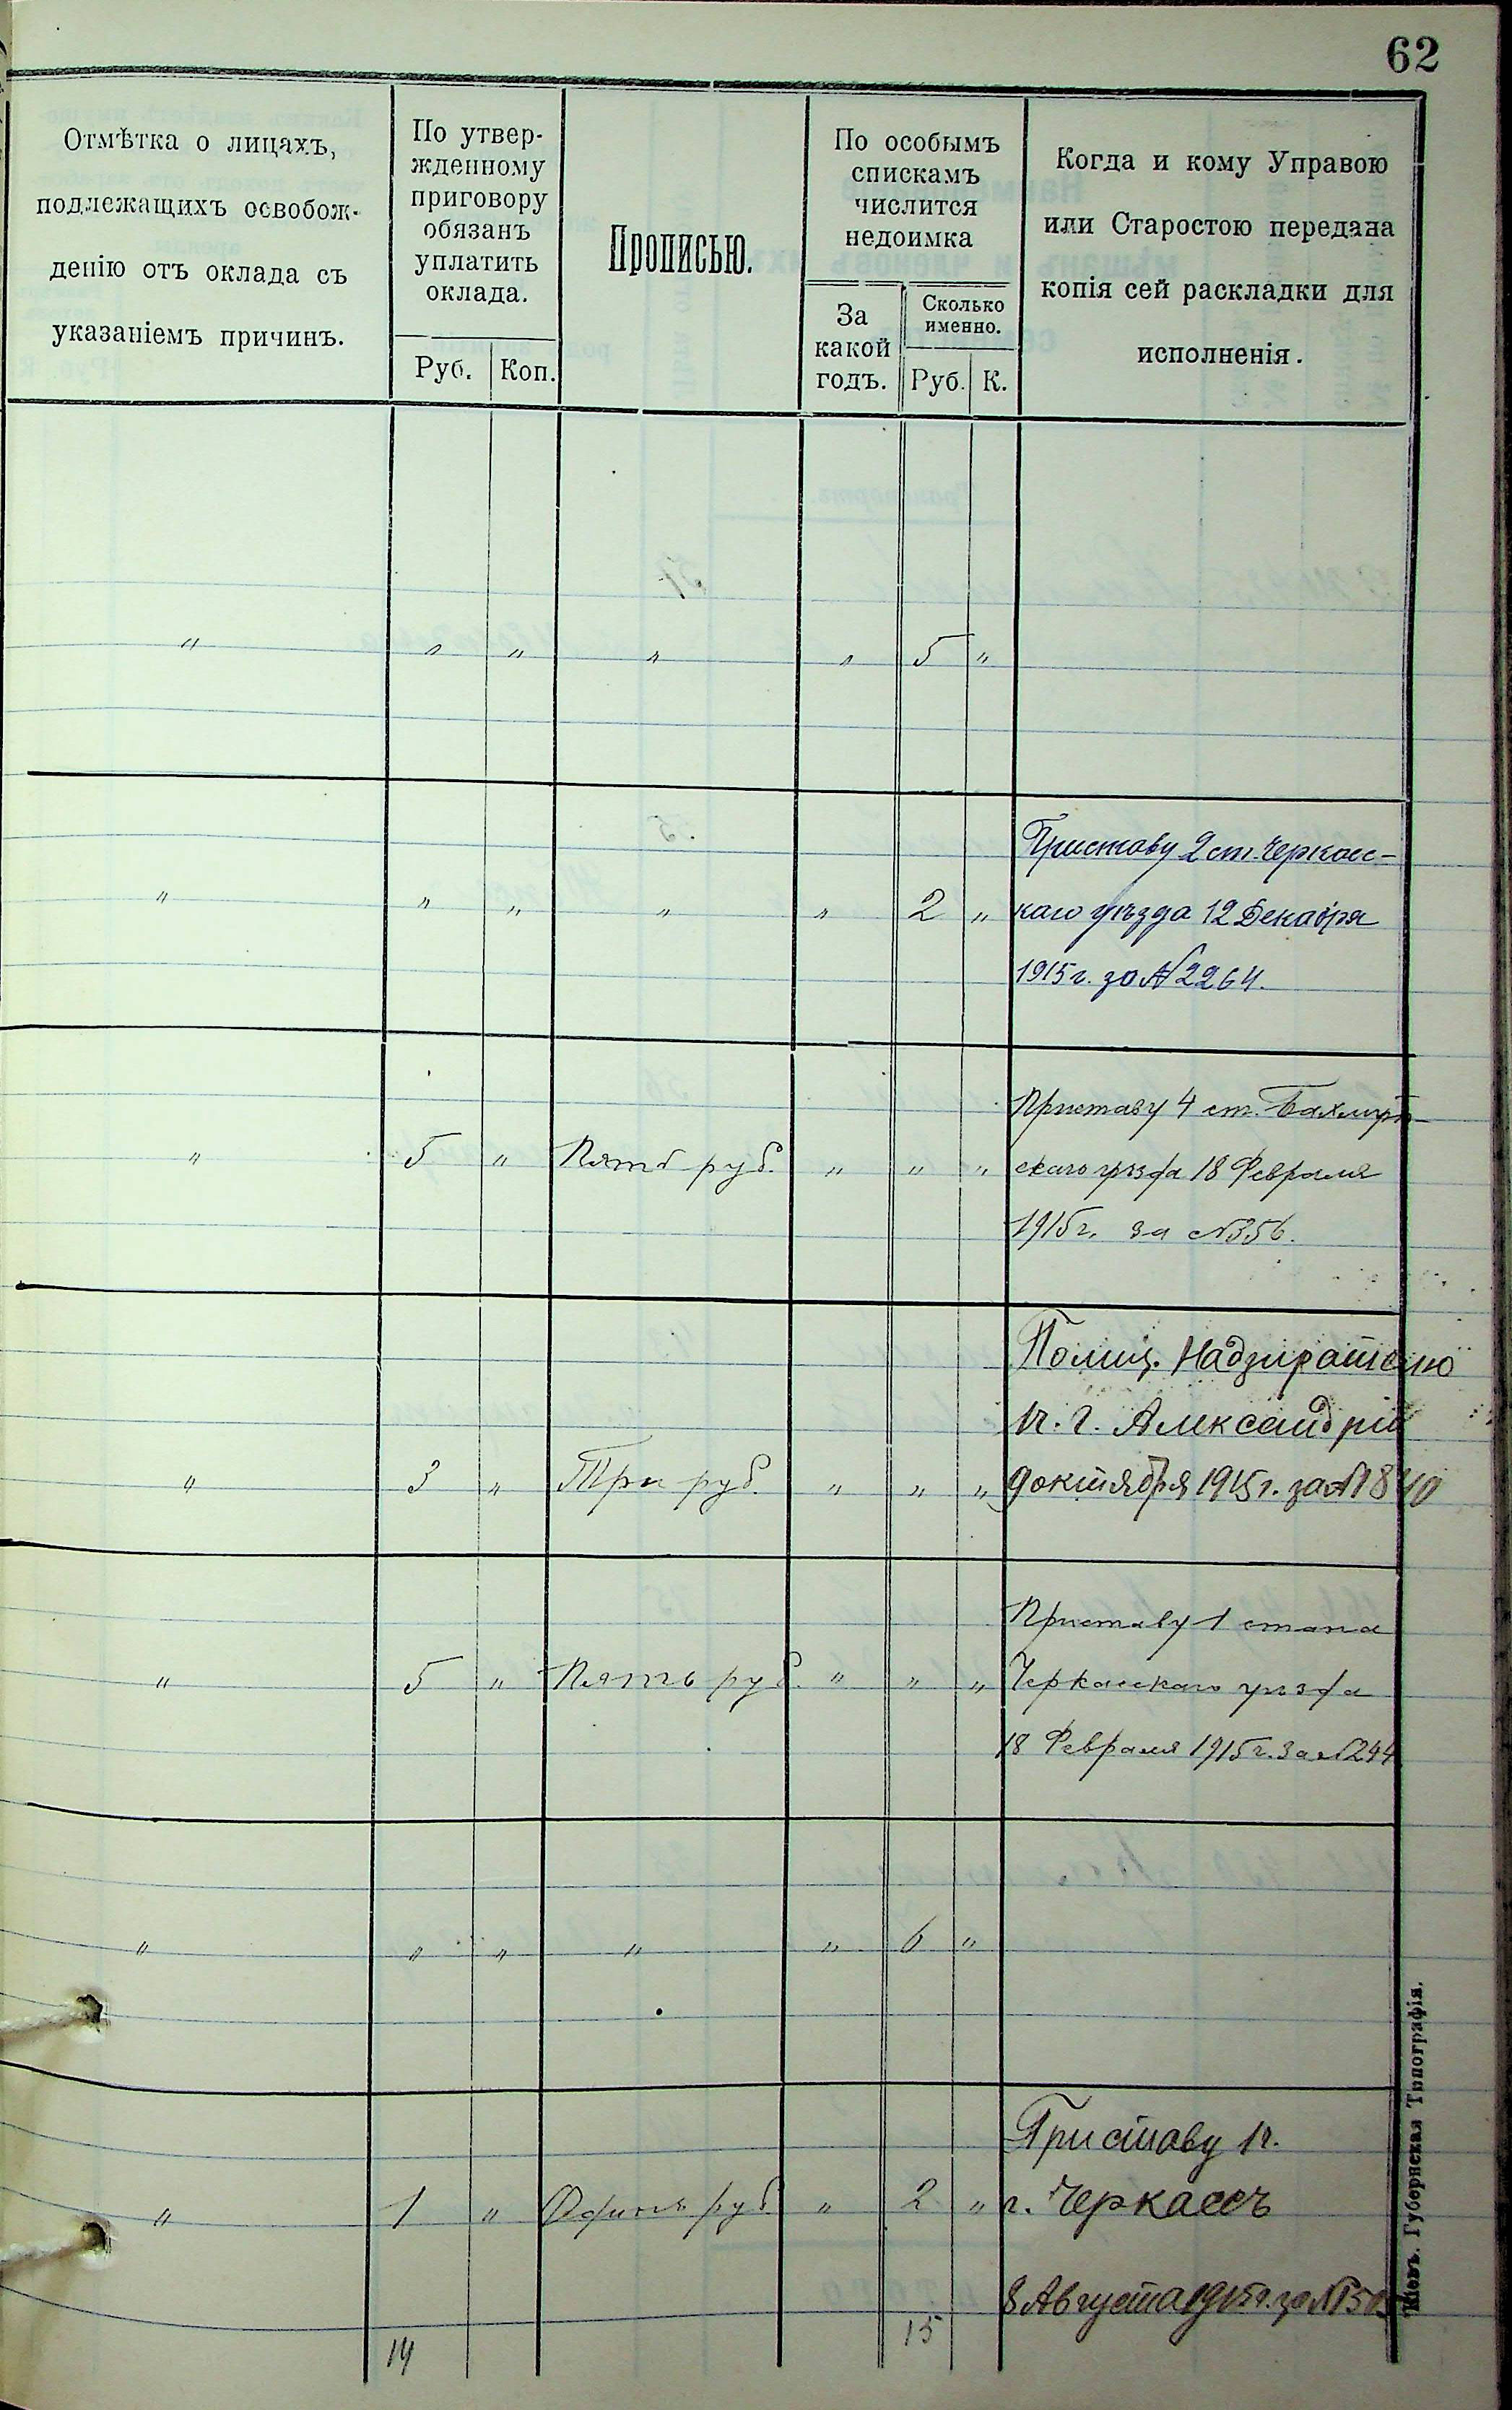 62
Отмѣтка о лицахъ,
подлежащихъ освобож-
денію отъ оклада съ
указаніемъ причинъ.
По утвер-
жденному
приговору
обязанъ
уплатить
оклада.
Руб. Коп.
Прописью.
По особымъ
спискамъ
числится
недоимка
За
какой
годъ.
Сколько
именно.
Руб. К.
Когда и кому Управою
или Старостою передана
копія сей раскладки для
исполненія.
" " " " " 5 "
Приставу 2 ст. Черкас-
" " " " " 2 " каго уѣзда 12 Декабря
1915 г. за № 2264.
Приставу 4 ст. Бахмут-
" 5 " Пять руб. " " " скаго уѣзда 18 Февраля
1915 г. за № 356.
Полиц. Надзирателю
1 ч. г. Александріи
" 3 " Три руб. " " " 9 октября 1915 г. за № 1840
Приставу 1 стана
" 5 " Пять руб. " " " Черкасскаго уѣзда
18 Февраля 1915 г. за № 244
" " " " " 6 "
Приставу 1 ч.
" 1 " Одинъ руб. " 2 " г. Черкассъ
8 Августа 1915 г. за №
14 15
Кіевъ. Губернская Типографія.